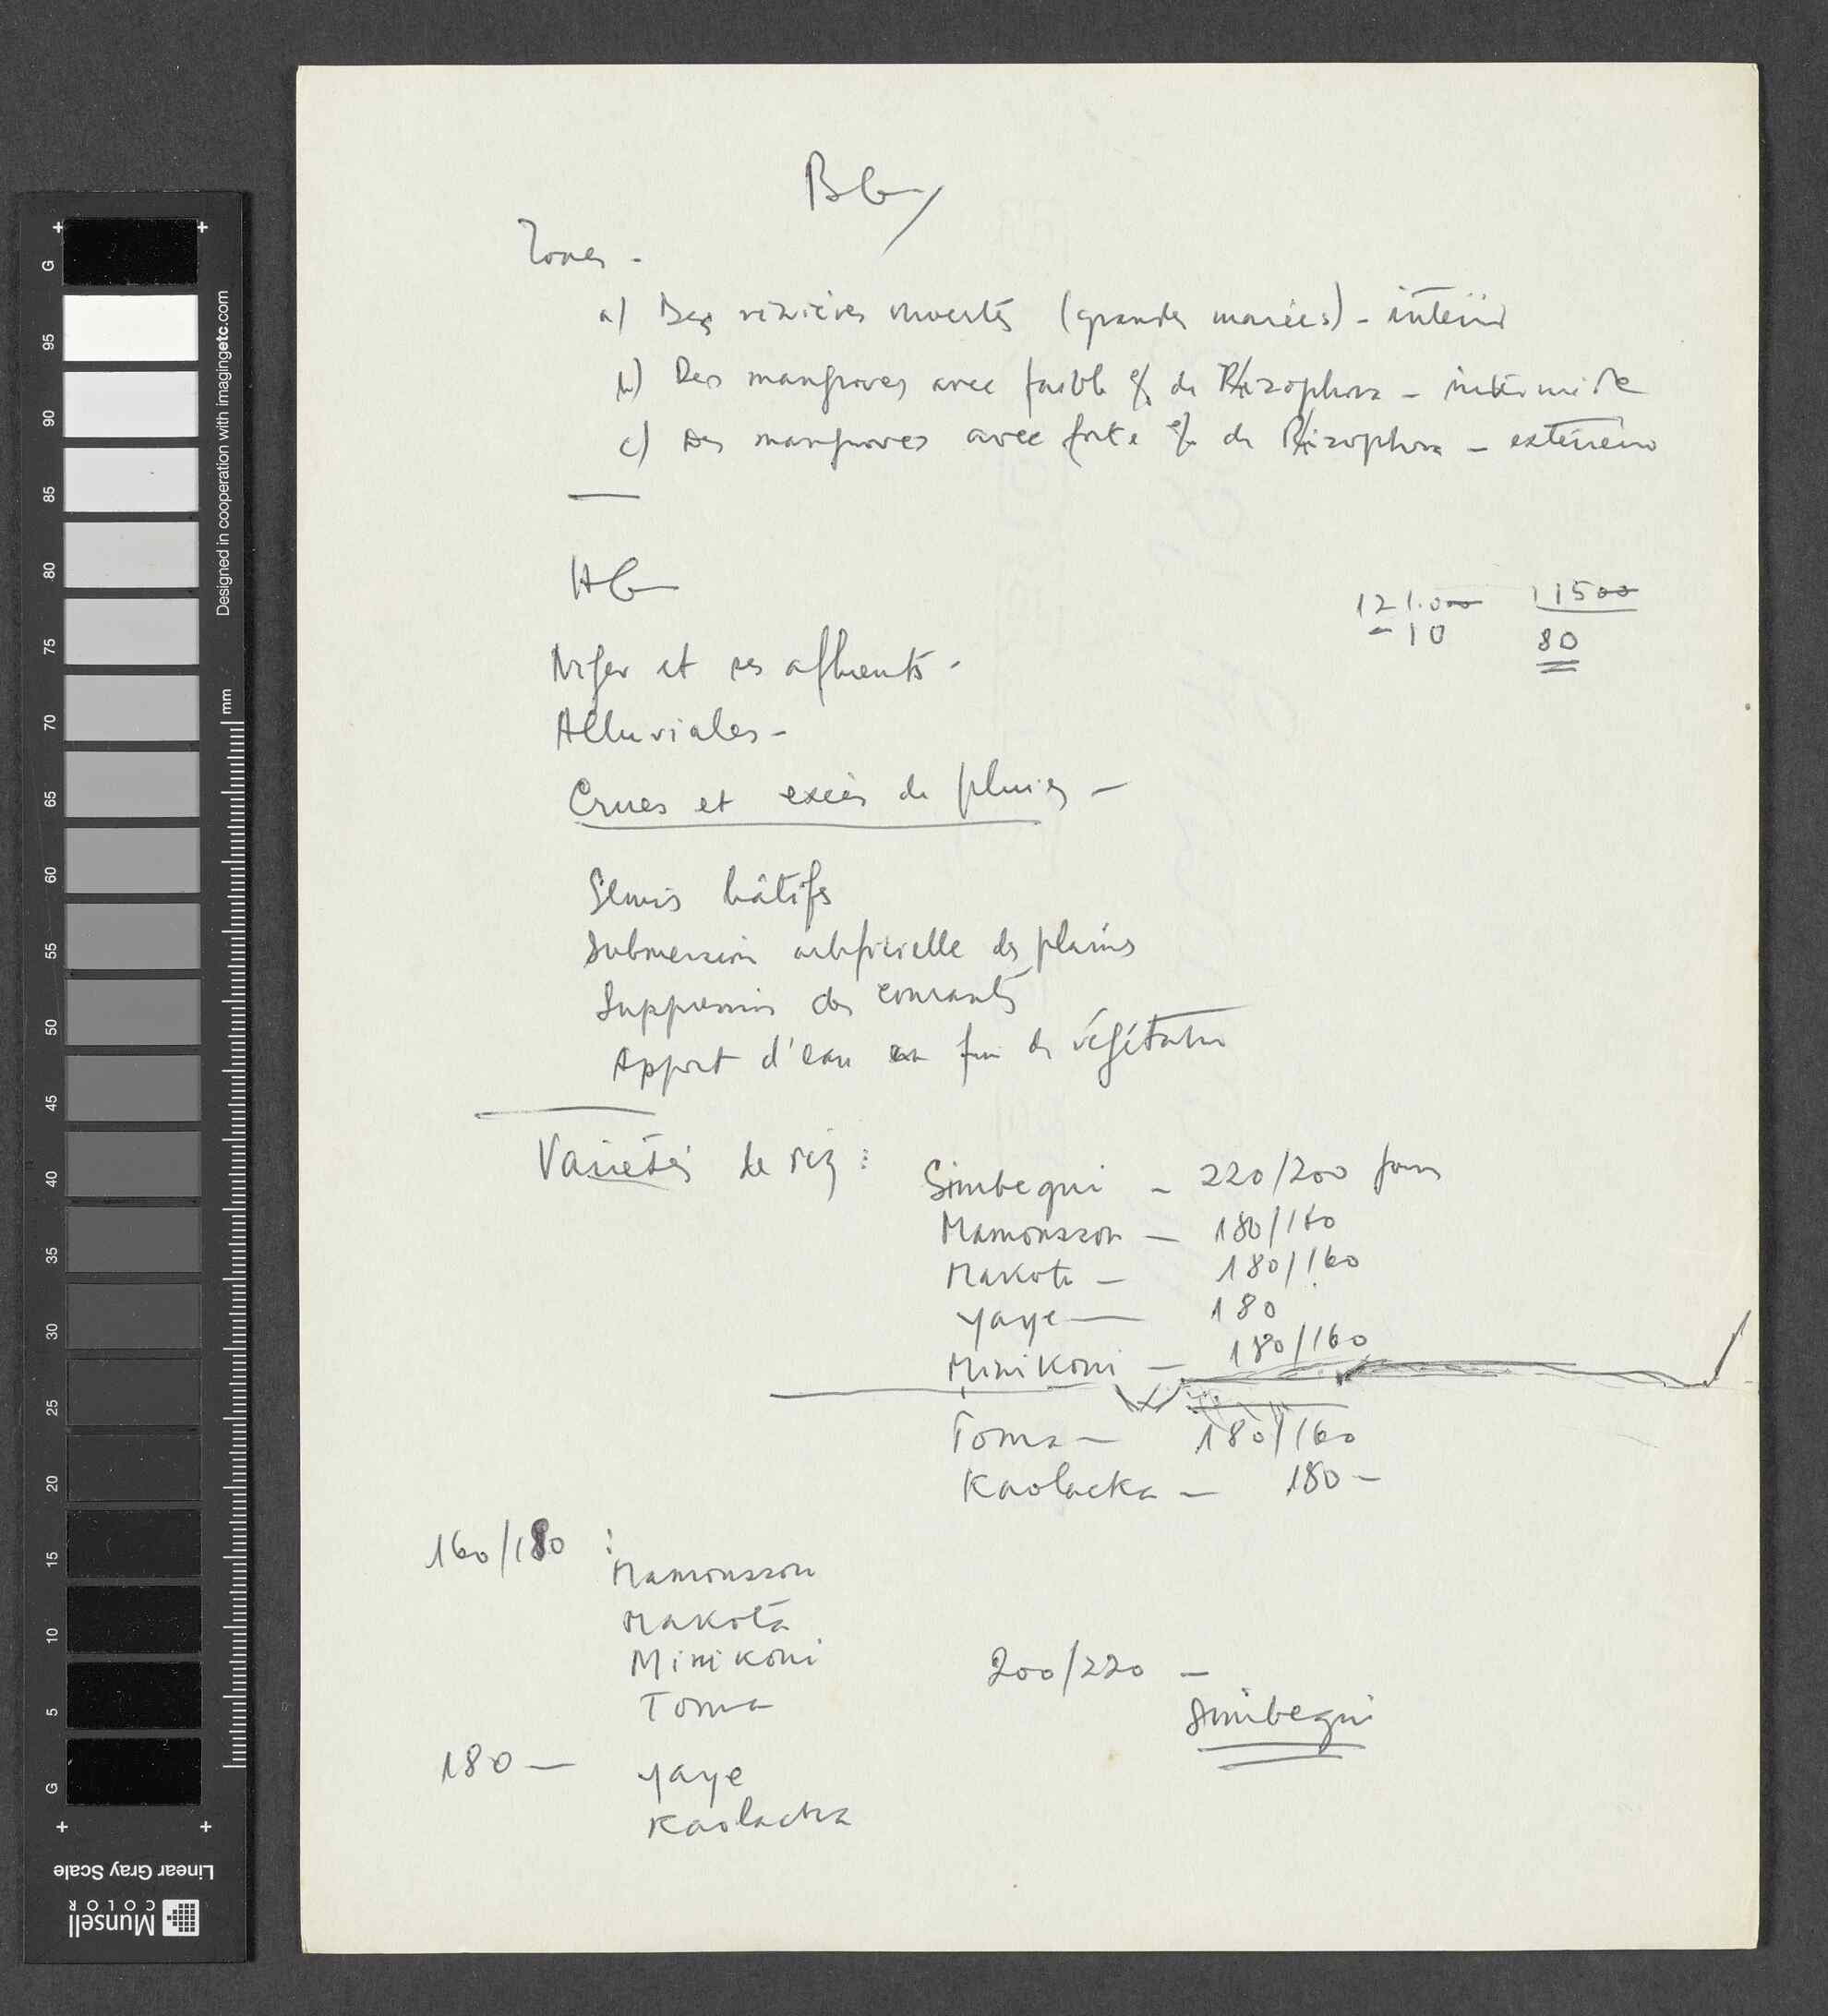 BG
Zones -
a) Des rizières ouvertes (grandes marées) - intérieur
b) Des mangroves avec faible % de Rhizophora -
c) des mangroves avec forte % de Rhizophora - extérieur
HG
121.000 11500
- 10 80
Niger et ses affluents -
Alluviales -
Crues et excès de pluies -
Semis hâtifs
Submersion artificielle des plaines
Suppression des courants
Apport d'eau en fin de végétation
Variétés de riz : Simbequi - 220/200 jours
Mamousson - 180/160
Makota - 180/160
Yaye - 180
Minikoni - 180/160
Toma - 180/160
Kaolacka - 180 -
160/180 :
Mamousson
Makota
Minikoni
Toma
200/220 -
Simbequi
180 - Yaye
Kaolacka
G
95
90
85
80
75
70
65
60
55
50
45
40
35
30
25
20
15
10
5
G
mm
Designed in cooperation with imagingetc.com
Linear Gray Scale
Munsell
COLOR